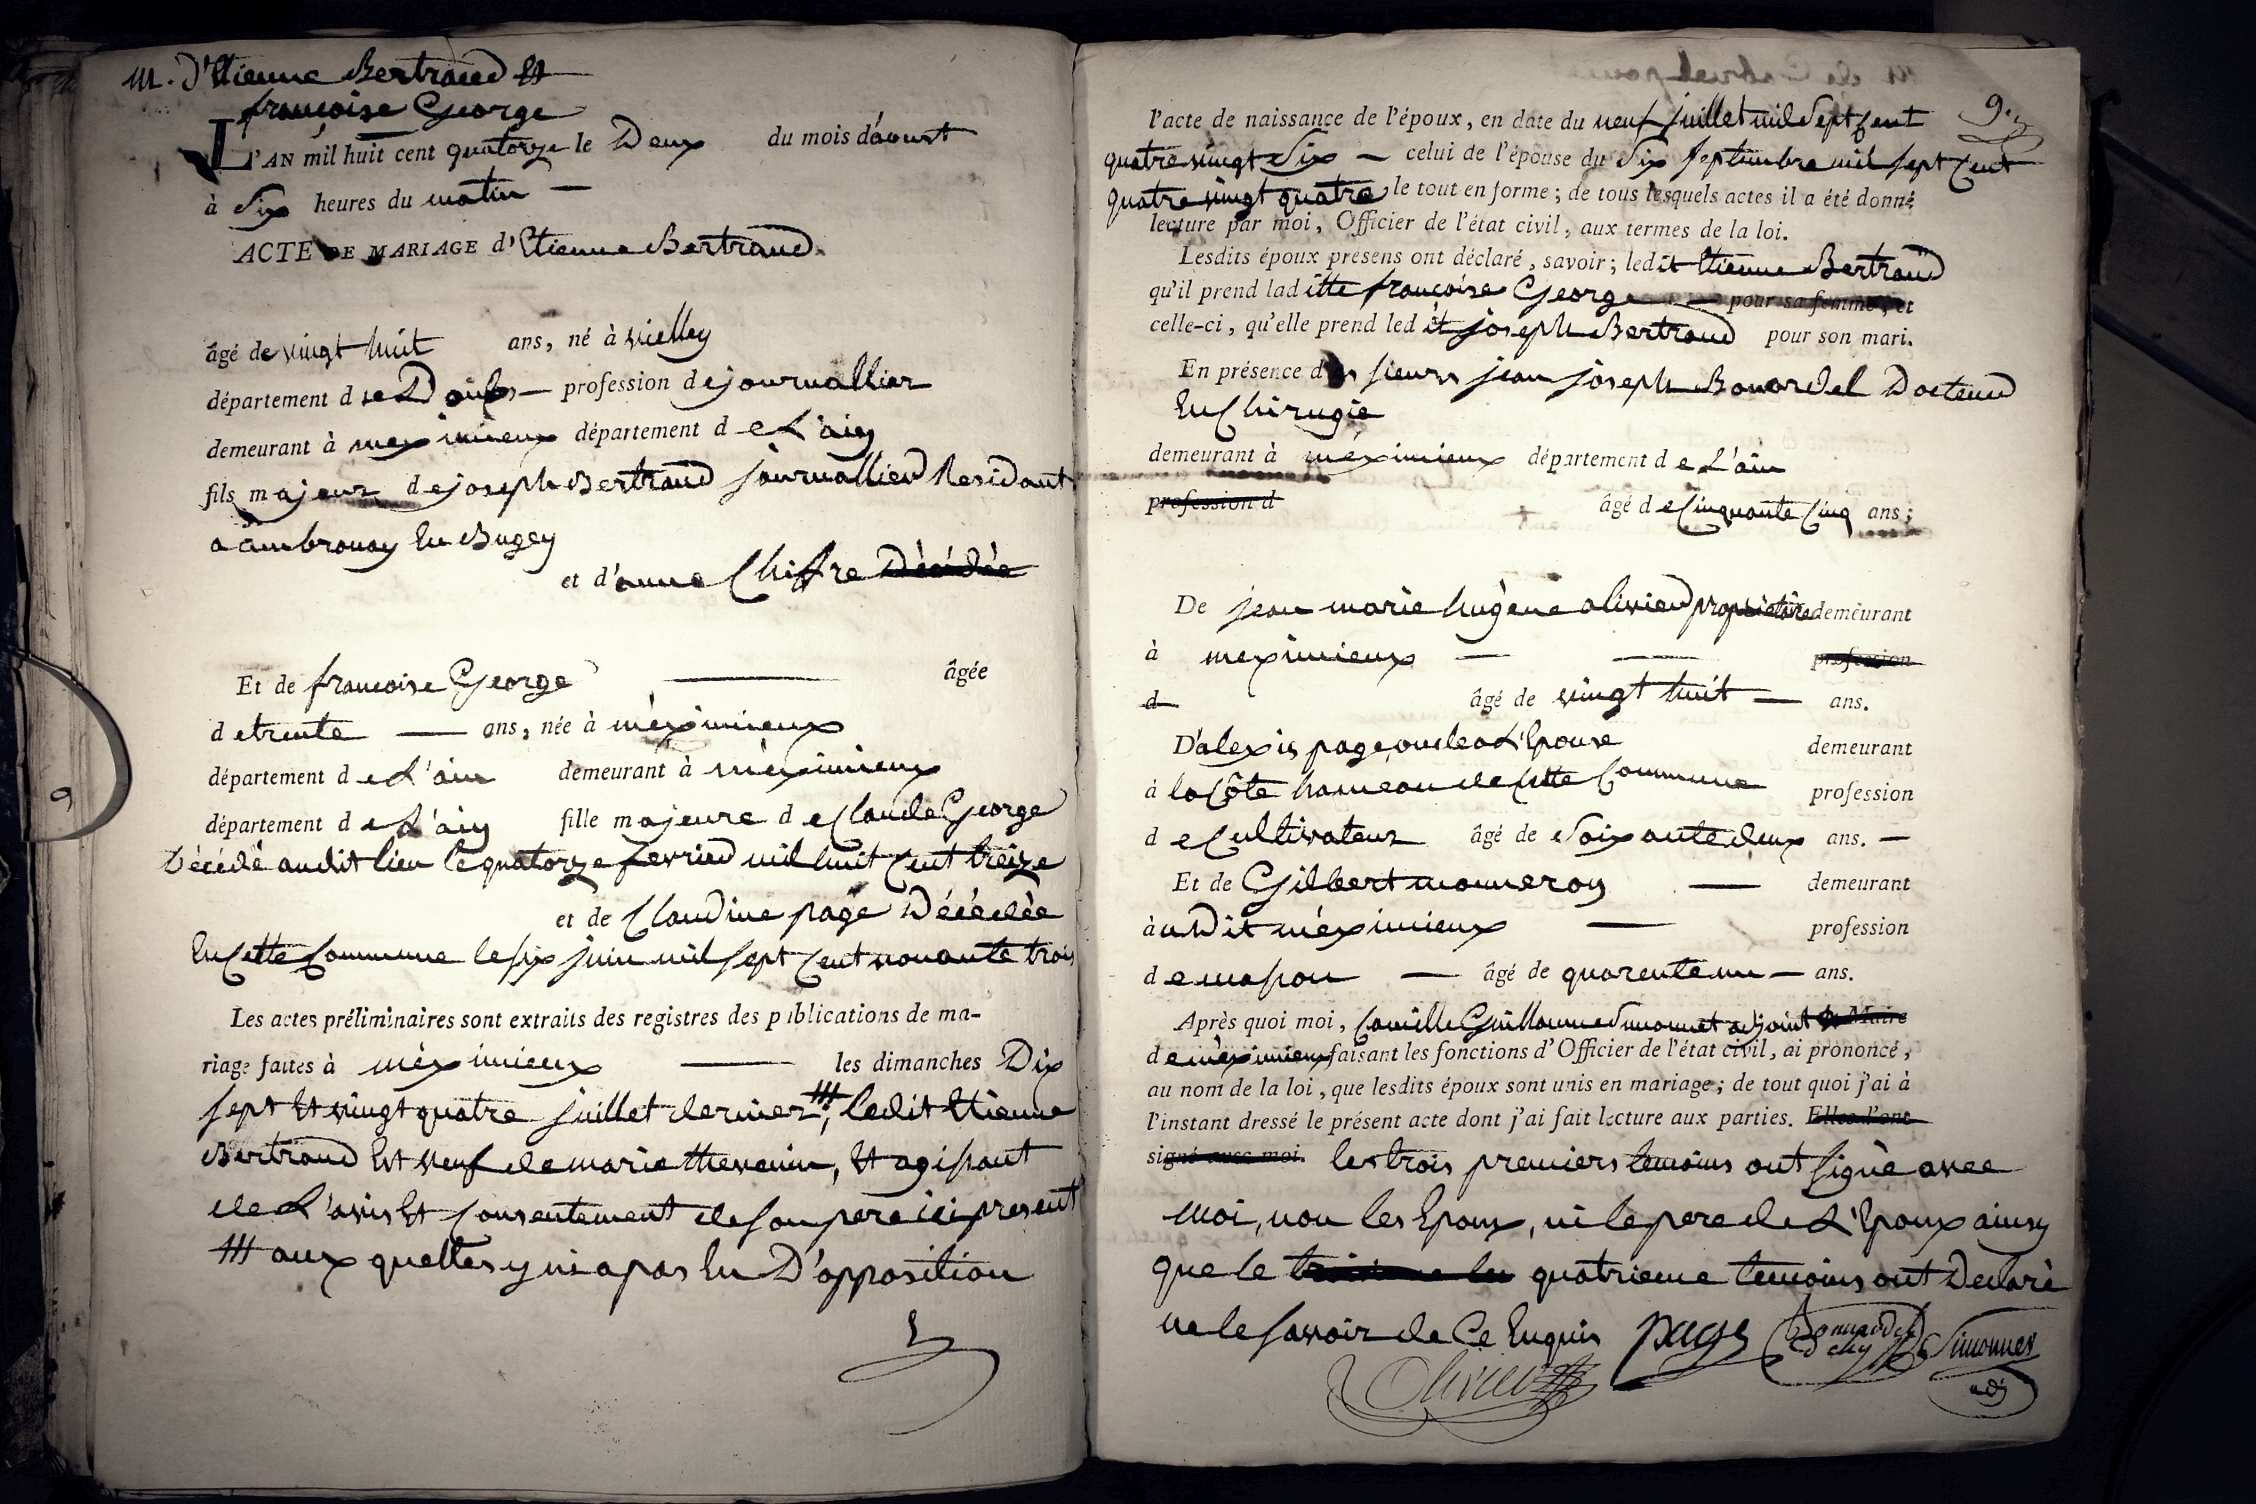 M. d'Etienne Bertrand Et
françoise George
L'AN mil huit cent quatorze le Deux du mois d'aoust
à Six heures du matin —
ACTE DE MARIAGE d'Etienne Bertrand
âgé de vingt huit ans, né à vielley
département de Doubs — profession de journallier
demeurant à meximieux département de L'ain
fils majeur de joseph Bertrand journallier Residant
a ambronay En Bugey
et d'anne Chiffre Décédée
Et de françoise George — âgée
de trente — ans, née à méximieux
département de L'ain demeurant à méximieux
département de L'ain fille majeure de Claude George
Décédé audit lieu le quatorze fevrier mil huit Cent treize
et de Claudine page Décédée
En Cette Commune le six juin mil sept Cent nonante trois
Les actes préliminaires sont extraits des registres des publications de ma-
riage faites à méximieux — les dimanches Dix
sept Et vingt quatre juillet dernier ///, ledit Etienne
Bertrand Est veuf de marie thevenin, Et agissant
de L'avis Et Consentement de son pere ici present
/// aux quelles y ni a pas Eu D'opposition
9
l'acte de naissance de l'époux, en date du neuf juillet mil Sept Cent
quatre vingt Six — celui de l'épouse du Six Septembre mil sept Cent
quatre vingt quatre le tout en forme ; de tous lesquels actes il a été donné
lecture par moi, Officier de l'état civil, aux termes de la loi.
Lesdits époux présens ont déclaré, savoir ; ledit Etienne Bertrand
qu'il prend laditte françoise George — pour sa femme, et
celle-ci, qu'elle prend ledit joseph Bertrand pour son mari.
En présence des sieurs jean joseph Bonardel Docteur
En Chirugie
demeurant à méximieux département de L'ain
profession d âgé de Cinquante Cinq ans ;
De jean marie hugène olivier propriétaire demeurant
à meximieux — — profession
d âgé de vingt huit — ans.
D'alexis page oncle a L'Epouse demeurant
à la Côte hameau de Cette Commune profession
de Cultivateur âgé de Soixante deux ans. —
Et de Gilbert monneron — demeurant
à uDit méximieux — profession
de mason — âgé de quarente un — ans.
Après quoi moi, Camille Guillaume Simonnet adjoint Maire
de méximieux faisant les fonctions d'Officier de l'état civil, ai prononcé,
au nom de la loi, que lesdits époux sont unis en mariage ; de tout quoi j'ai à
l'instant dressé le présent acte dont j'ai fait lecture aux parties. Elles l'ont
signé avec moi. les trois premiers temoins ont signè avec
moi, non les Epoux, ni le pere de L'Epoux ainsy
que le quatrieme temoins ont Declarè
ne le savoir de Ce Enquis page Bonardel Simonnet
Olivier adj